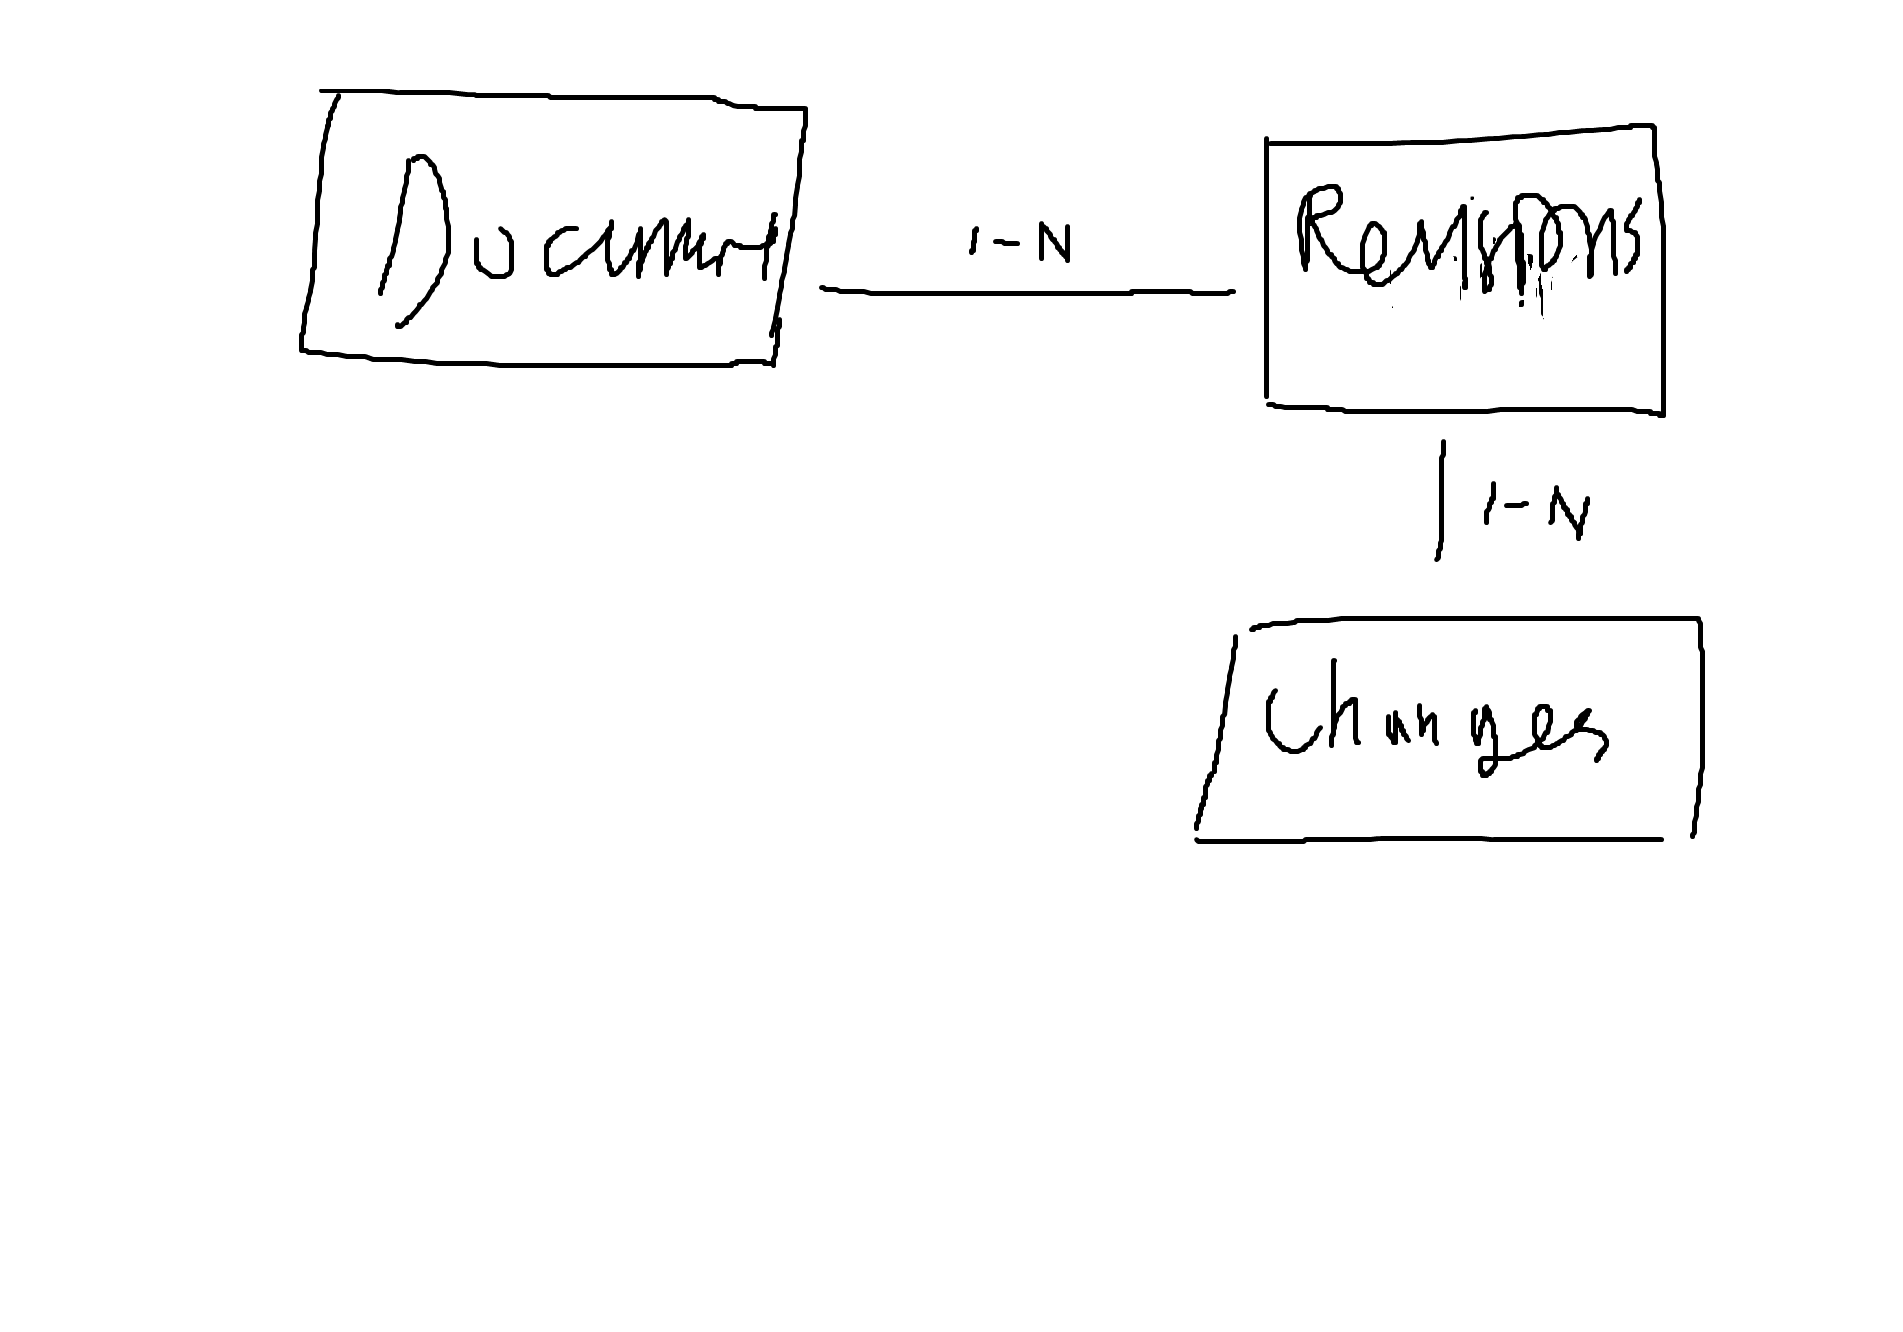 Document
1-N
Revisions
1-N
Changes